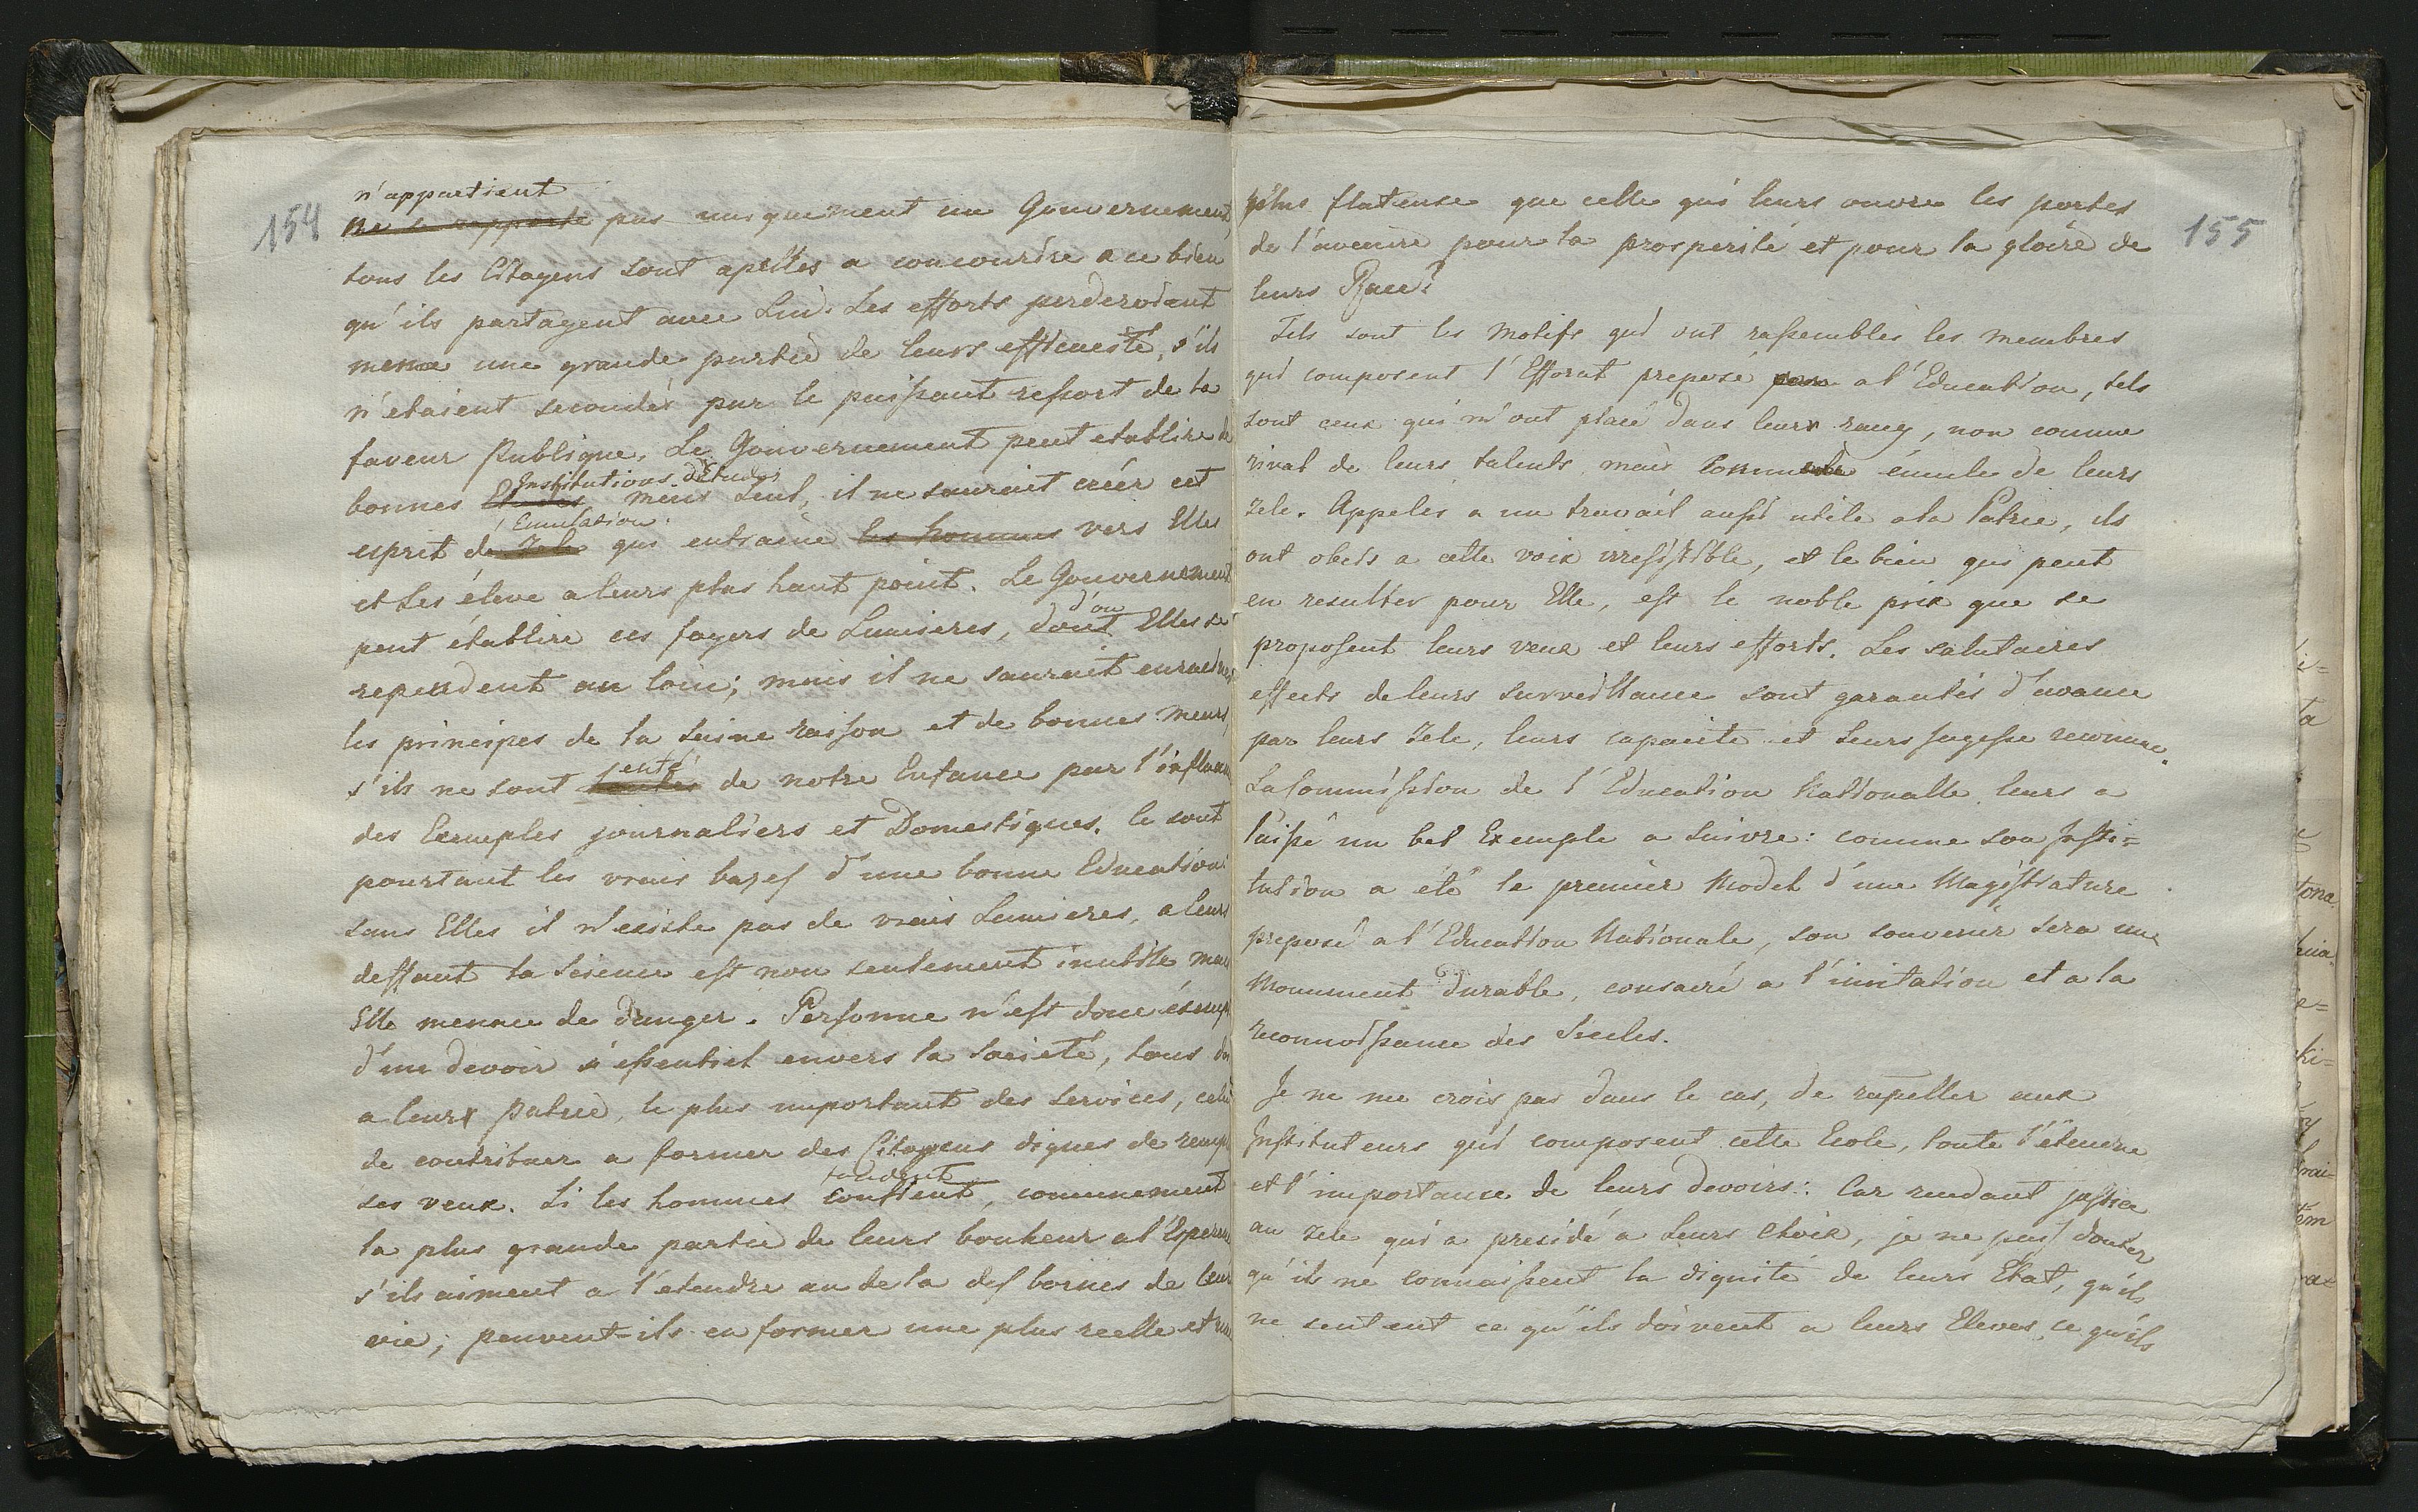 154
n'appartient
ne se rapporte pas uniquement au Gouvernement,
tous les Citoyens sont apellés a concourire a ce bien
qu'ils partagent avec Lui. Les efforts perderoient
meme une grande partie de leurs efficacité, s'ils
n'etaient secondés par le puissant ressort de la
faveur Publique. Le Gouvernement peut etablire de
Institutions d'Etudes
bonnes Etudes mais seul, il ne sauroit créér cet
Emulation
esprit de Zele qui entraine les hommes vers Elles
et les éleve a leurs plus haut point. Le Gouvernement
d'ou
peut établire ces foyers de Lumieres, dont Elles se
rependent au loin; mais il ne sauroit
les principes de la saine raison et de bonnes meurs,
enté
s'ils ne sont de notre Enfance par
des Exemples journaliers et Domestiques. Ce sont
pourtant les vrais bases d'une bonne Education:
sans Elles il n'existe pas de vrais Lumieres, a leurs
deffaut la Science est non seulement inutile mais
Elle menace de danger. Personne n'est donc
d'un devoir si essentiel envers la société, tous
a leurs patrie, le plus important des services, celui
de contribuer a former des Citoyens dignes de
fondent
ses veux. Si les hommes confient, comunement
la plus grande partie de leurs bonheur a
s'ils aiment a l'etendre au dela des bornes de leur
vie; peuvent-ils en former une plus reelle et
155
plus flateuse que celle qui leurs ouvre les portes
de l'avenire pour la prosperité et pour la gloire de
leurs Race?
Tels sont les Motifs qui ont rassemblés les membres
qui composent l'Efforat preposé pour a l'Education, tels
sont ceux qui m'ont placé dans leurs rang, non comme
rival de leurs talents mais comme émule de leurs
Zele. Appelés a un travail aussi utile a la Patrie, ils
ont obeis a cette voix irresistible, et le bien qui peut
en resulter pour Elle, est le noble prix que se
proposent leurs veux et leurs efforts. Les salutaires
effects de leurs surveillance sont garantis d'avance
par leurs Zele, leurs capacité et leurs sagesse reconnue.
La Commission de l'Education Nationalle leurs a
laissé un bel Exemple a suivre: comme son Insti=
tution a été le premier Model d'une Magistrature
preposé a l'Education Nationale, son souvenir sera un
Monument durable, consacré a l'imitation et a la
reconnoissance des Siecles.
Je ne me crois pas dans le cas, de rapeller aux
Instituteurs qui composent cette Ecole, toute l'étendue
et l'importance de leurs devoirs: Car rendant justice
au Zele qui a presidé a leurs choix, je ne puis douter
qu'ils ne connaissent la dignité de leurs État, qu'ils
ne sentent ce qu'ils doivent a leurs Eleves, ce qu'ils